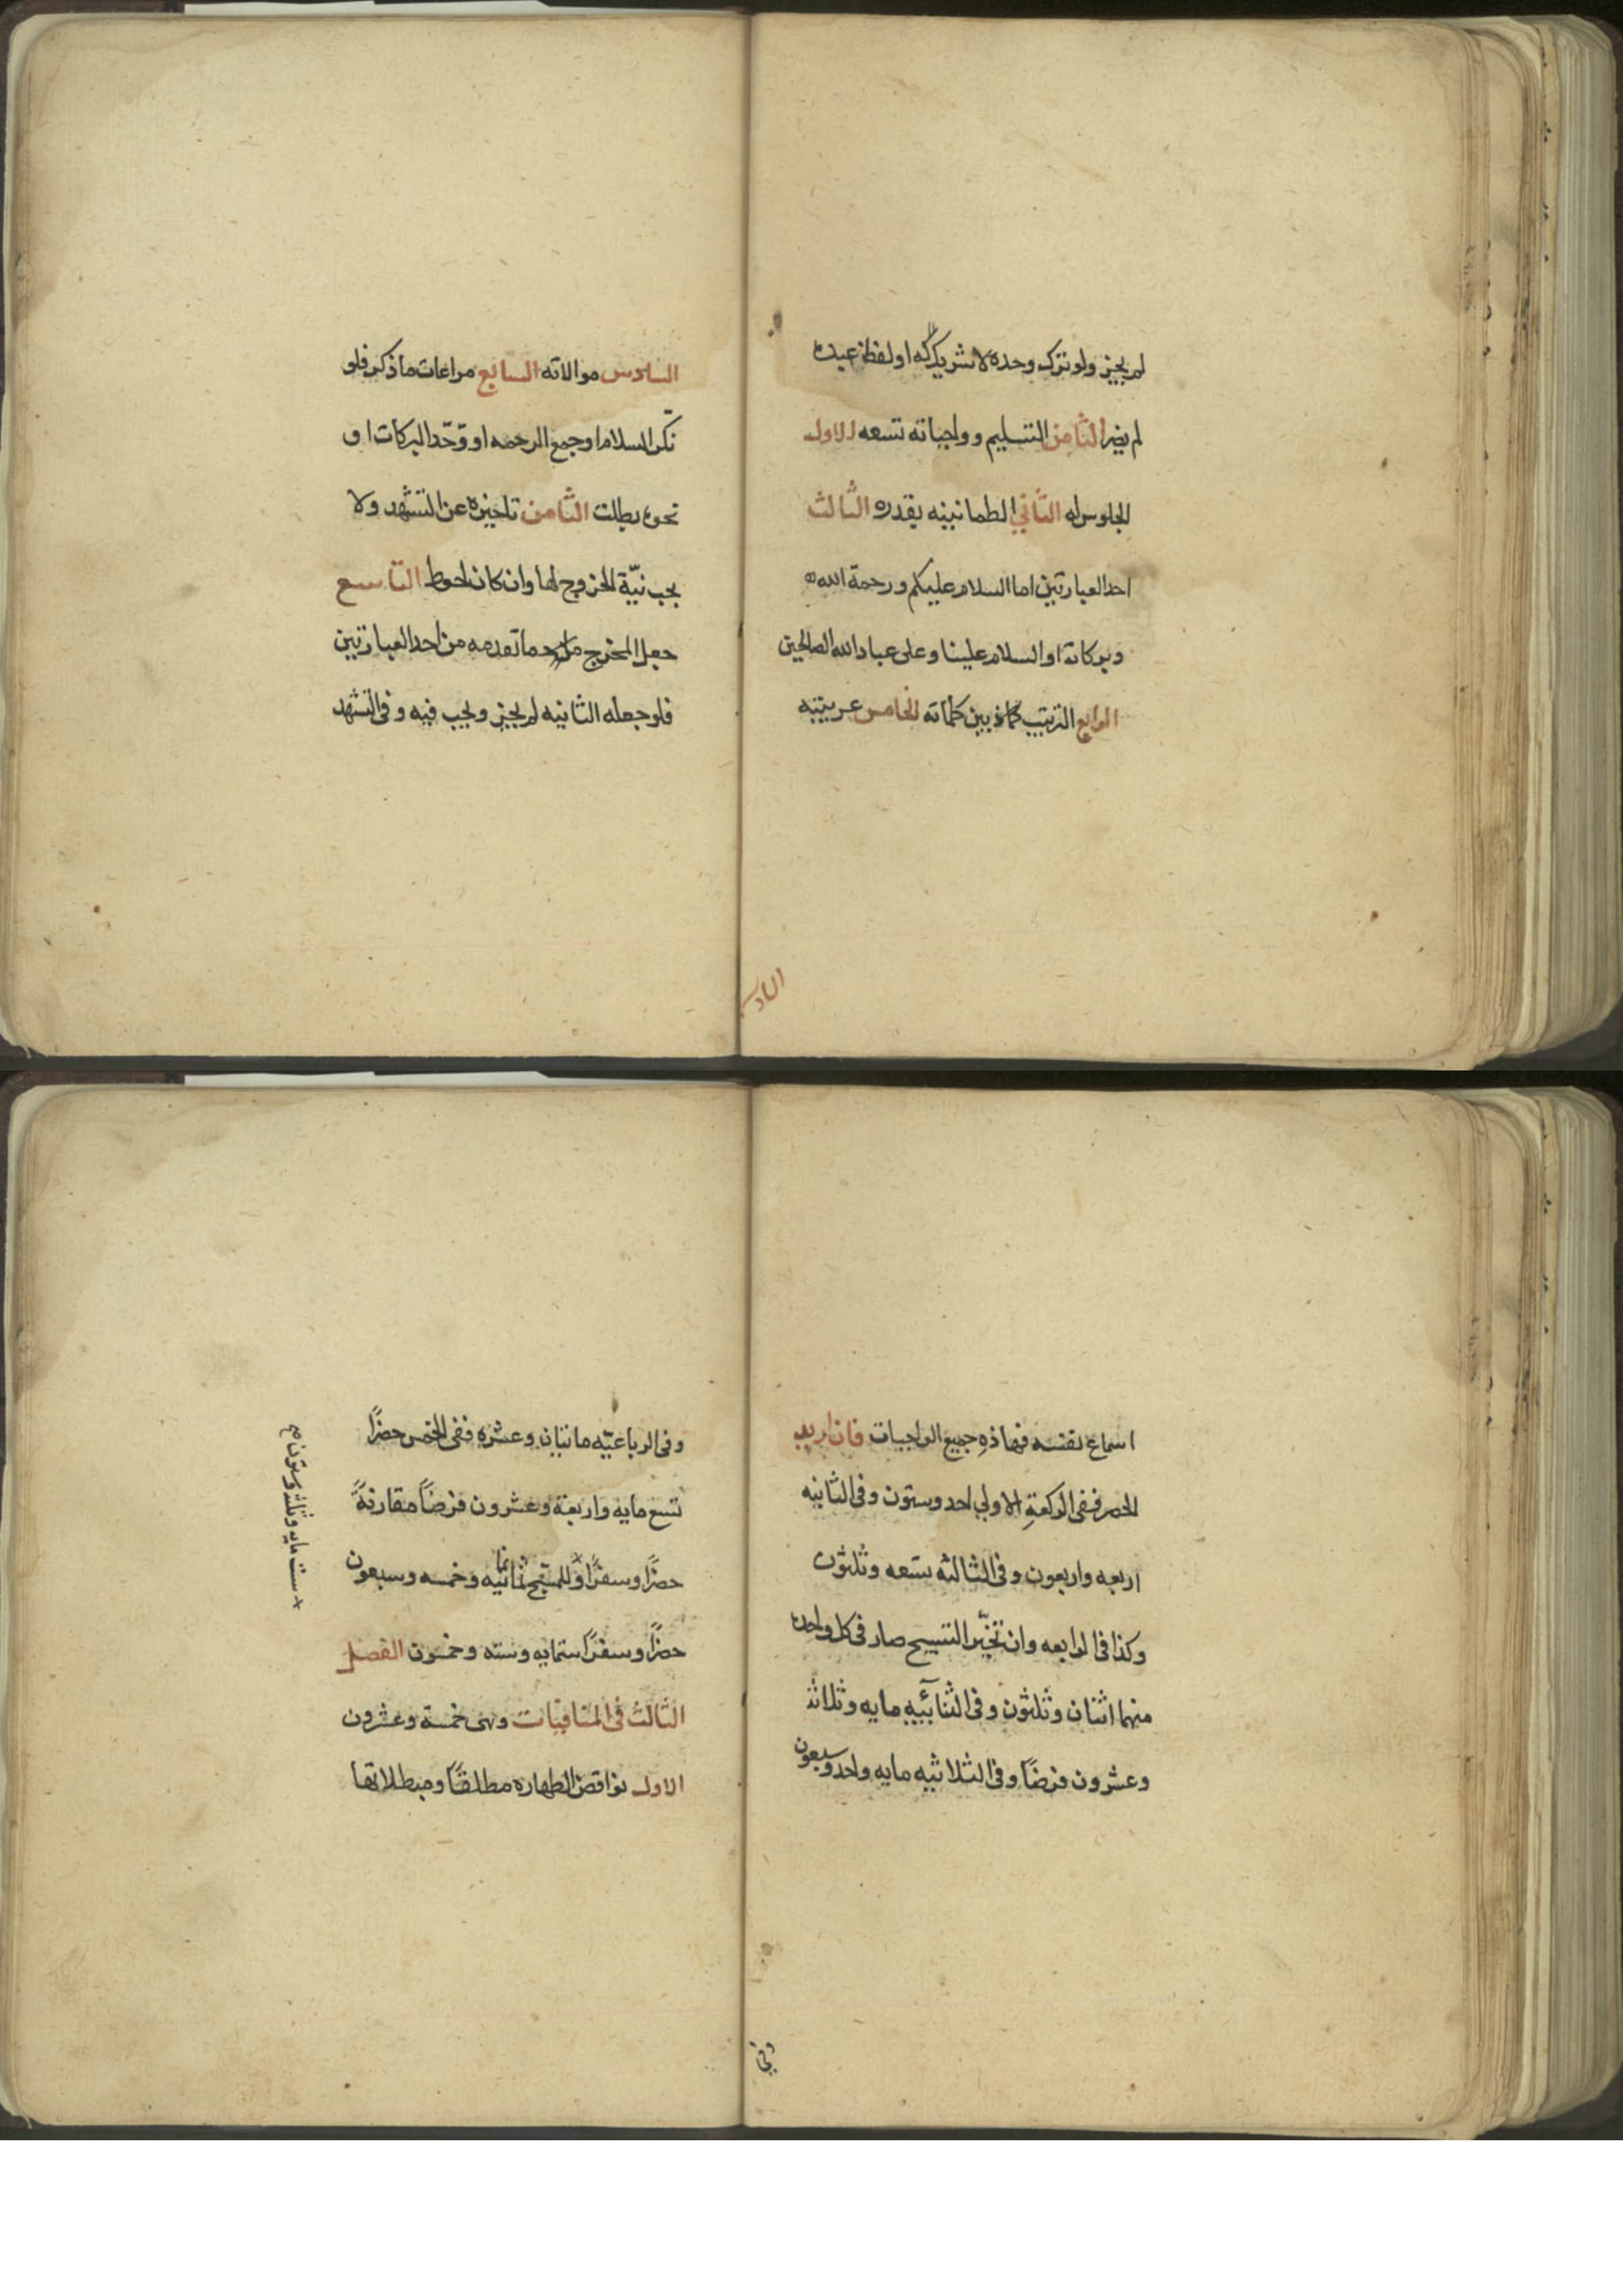 لم يجز ولو ترك وحده لا شريك له او لفظ عبده
لم يضر الثامن التسليم وواجباته تسعه الاول
الجلوس له الثاني الطمانينه بقدره الثالث
احد العبارتين اما السلام عليكم ورحمة الله
وبركاته او السلام علينا وعلى عباد الله الصالحين
الرابع الترتيب بين كلماته الخامس عربيته
السادس
السادس موالاته السابع مراعات ما ذكر فلو
نكّر السلام او جمع الرحمه او وحّد البركات او
نحوه بطلت الثامن تاخيره عن التشهد ولا
يجب نيّة الخروج لها وان كان احوط التاسع
جعل المخرج ما تقدمه من احد العبارتين
فلو جعله الثانيه لم يجز ويجب فيه وفى التشهد
اسماع نفسه فهاذهِ جميع الواجبات فان اريد
الحصر ففى الركعةِ الاولى احد وستون وفى الثانيه
اربعه واربعون وفى الثالثه تسعه وثلثون
وكذا فى الرابعه وان تخيّر التسبيح صار فى كل واحده
منهما اثنان وثلثون وفى الثنآئيهِ مايه وثلاثه
وعشرون فرضًا وفى الثلاثيه مايه واحد وسبعون
وفى
وفى الرباعيّه مائتان وعشره ففى الخمس حضرًا
تسع مايه واربعة وعشرون فرضًا مقارنةً
حضرًا وسفرًا وللمسبّح ثمانيه وخمسه وسبعون
حضرًا وسفرًا ستمايه وسته وخمسون الفصل
الثالث فى المنافيات وهى خمسة وعشرون
الاول نواقض الطهاره مطلقًا ومبطلاتها
ست مايه وثلثه وستون